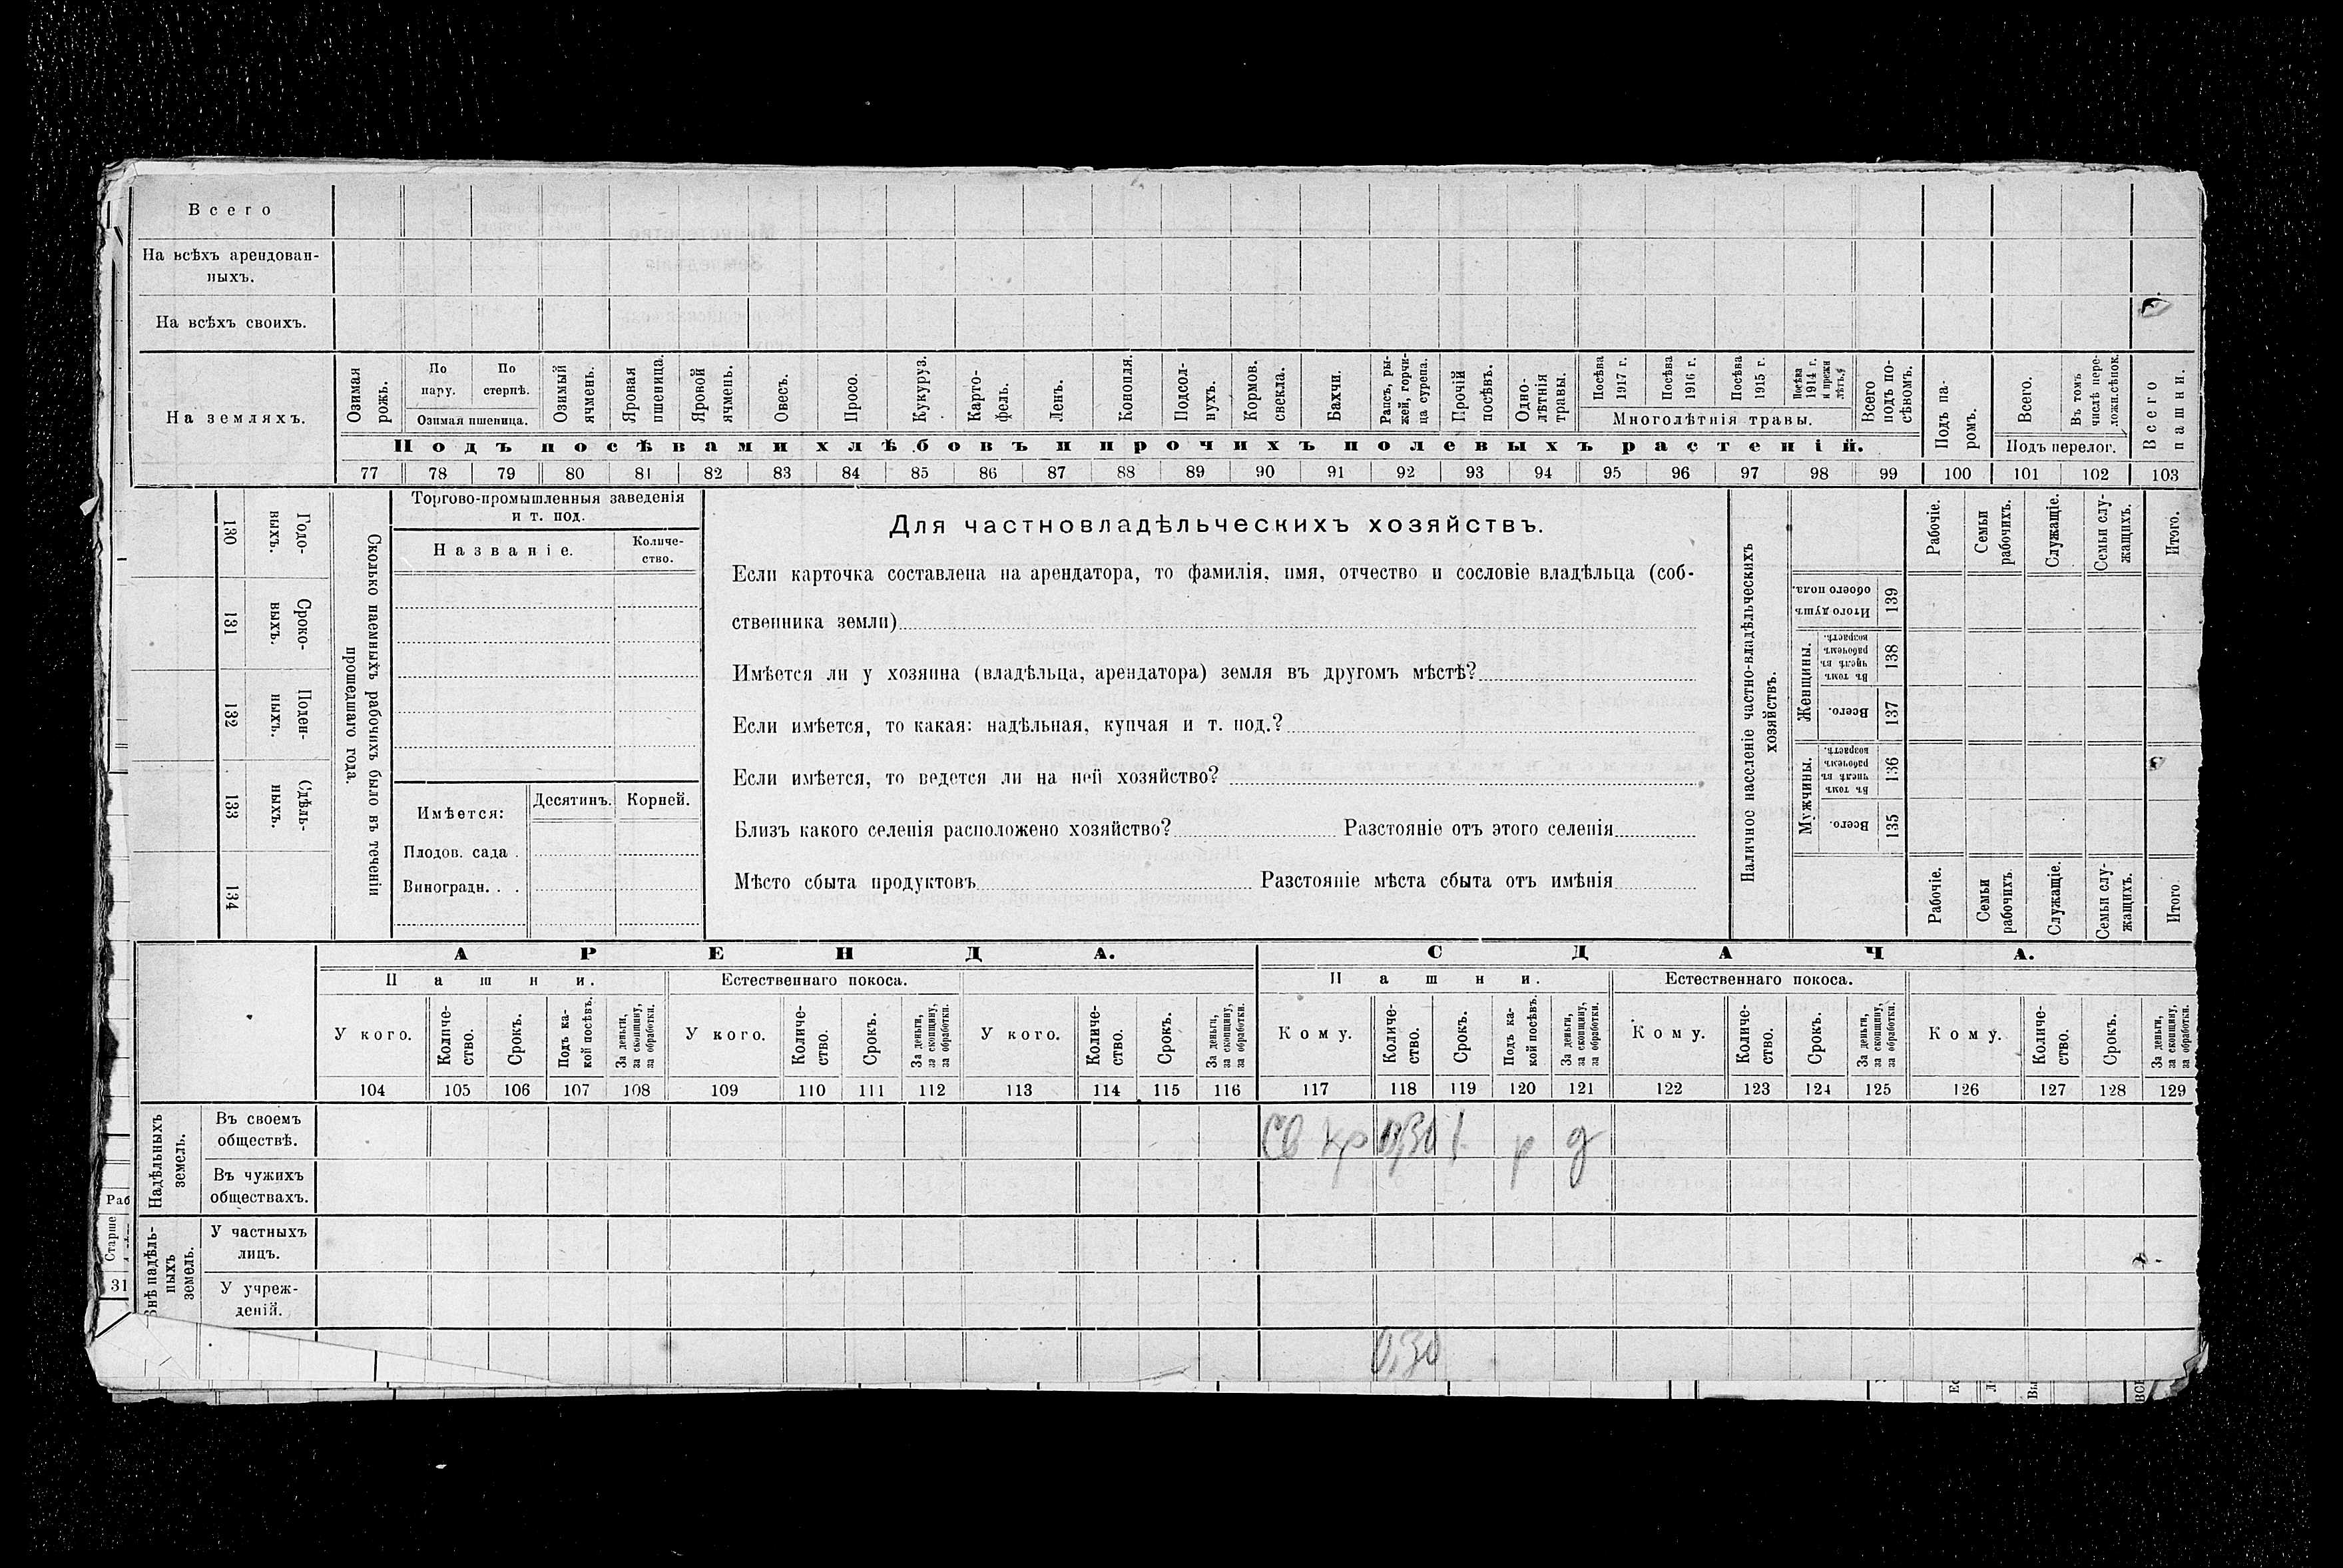 Всего
На всѣхъ арендован-
ныхъ.
На всѣхъ своихъ.
На земляхъ.
Озимая рожь.
По пару.
По стернѣ.
Озимая пшеница.
Озимый ячмень.
Яровая пшеница.
Яровой ячмень.
Овесъ.
Просо.
Кукуруз.
Карто-
фель.
Ленъ.
Конопля.
Подсол-
нухъ.
Кормов. свекла.
Бахчи.
Рапсъ, ры-
жей, горчи-
ца сурепа.
Прочій посѣвъ.
Одно-
лѣтнія травы.
Посѣва 1917 г.
Посѣва 1916 г.
Посѣва 1915 г.
Посѣва 1914 г. и прежн
Многолѣтнія травы.
Всего подъ по-
сѣвомъ.
Подъ па-
ромъ.
Всего.
Въ томъ числѣ пере-
ложн.сѣнок.
Подъ перелог.
Всего пашни.
Подъ посѣвами хлѣбовъ и прочихъ полевыхъ растеній.
77 78 79 80 81 82 83 84 85 86 87 88 89 90 91 92 93 94 95 96 97 98 99 100 101 102 103
130 Годо-
выхъ.
131 Сроко-
выхъ.
132 Поден-
ныхъ.
133 Сдѣль-
ныхъ.
134
Сколько наемныхъ рабочихъ было въ теченіи
прошедшаго года.
Торгово-промышленныя заведенія
и т. под.
Названіе.
Количе-
ство.
Имѣется:
Десятинъ.
Корней.
Плодов. сада .
Виноградн. . .
Для частновладѣльческихъ хозяйствъ.
Если карточка составлена на арендатора, то фамилія, имя, отчество и сословіе владѣльца (соб-
ственника земли)
Имѣется ли у хозяина (владѣльца, арендатора) земля въ другомъ мѣстѣ?
Если имѣется, то какая: надѣльная, купчая и т. под.?
Если имѣется, то ведется ли на ней хозяйство?
Близъ какого селенія расположено хозяйство? Разстояніе отъ этого селенія
Мѣсто сбыта продуктовъ Разстояніе мѣста сбыта отъ имѣнія
Наличное населеніе частно-владѣльческихъ
хозяйствъ.
Рабочіе.
Семьи рабочихъ.
Служащіе.
Семьи слу-
жащихъ.
Итого.
Итого душъ обоего пола.
139
Женщины.
Въ томъ числѣ въ рабочемъ возрастѣ.
138
Всего.
137
Мужчины.
Въ томъ числѣ въ рабочемъ возрастѣ.
136
Всего.
135
Рабочіе.
Семьи рабочихъ.
Служащіе.
Семьи слу-
жащихъ.
Итого
АРЕНДА.
СДАЧА.
Пашни.
Естественнаго покоса.
Пашни.
Естественнаго покоса.
У кого.
Количе-
ство.
Срокъ.
Подъ ка-
кой посѣвъ.
За деньги, за скопщину, за обработки.
У кого.
Количе-
ство.
Срокъ.
За деньги, за скопщину, за обработки.
У кого.
Количе-
ство.
Срокъ.
За деньги, за скопщину, за обработки.
Кому.
Количе-
ство.
Срокъ.
Подъ ка-
кой посѣвъ.
За деньги, за скопщину, за обработки.
Кому.
Количе-
ство.
Срокъ.
За деньги, за скопщину, за обработки.
Кому.
Количе-
ство.
Срокъ.
За деньги, за скопщину, за обработки.
104 105 106 107 108 109 110 111 112 113 114 115 116 117 118 119 120 121 122 123 124 125 126 127 128 129
Надѣльныхъ
земель.
Въ своемъ
обществѣ.
Св кр 0,30 1 р д
Въ чужихъ
обществахъ.
Внѣ надѣль-
ныхъ
земель.
У частныхъ
лицъ.
У учреж-
деній.
0,30
Раб
Старше
31